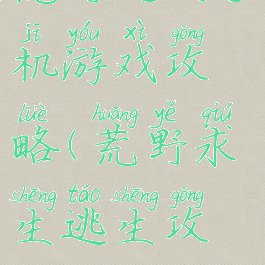 jī yóu xì gōng
机游戏攻
lüè huāng yě qiú
略(荒野求
shēng táo shēng gōng
生逃生攻